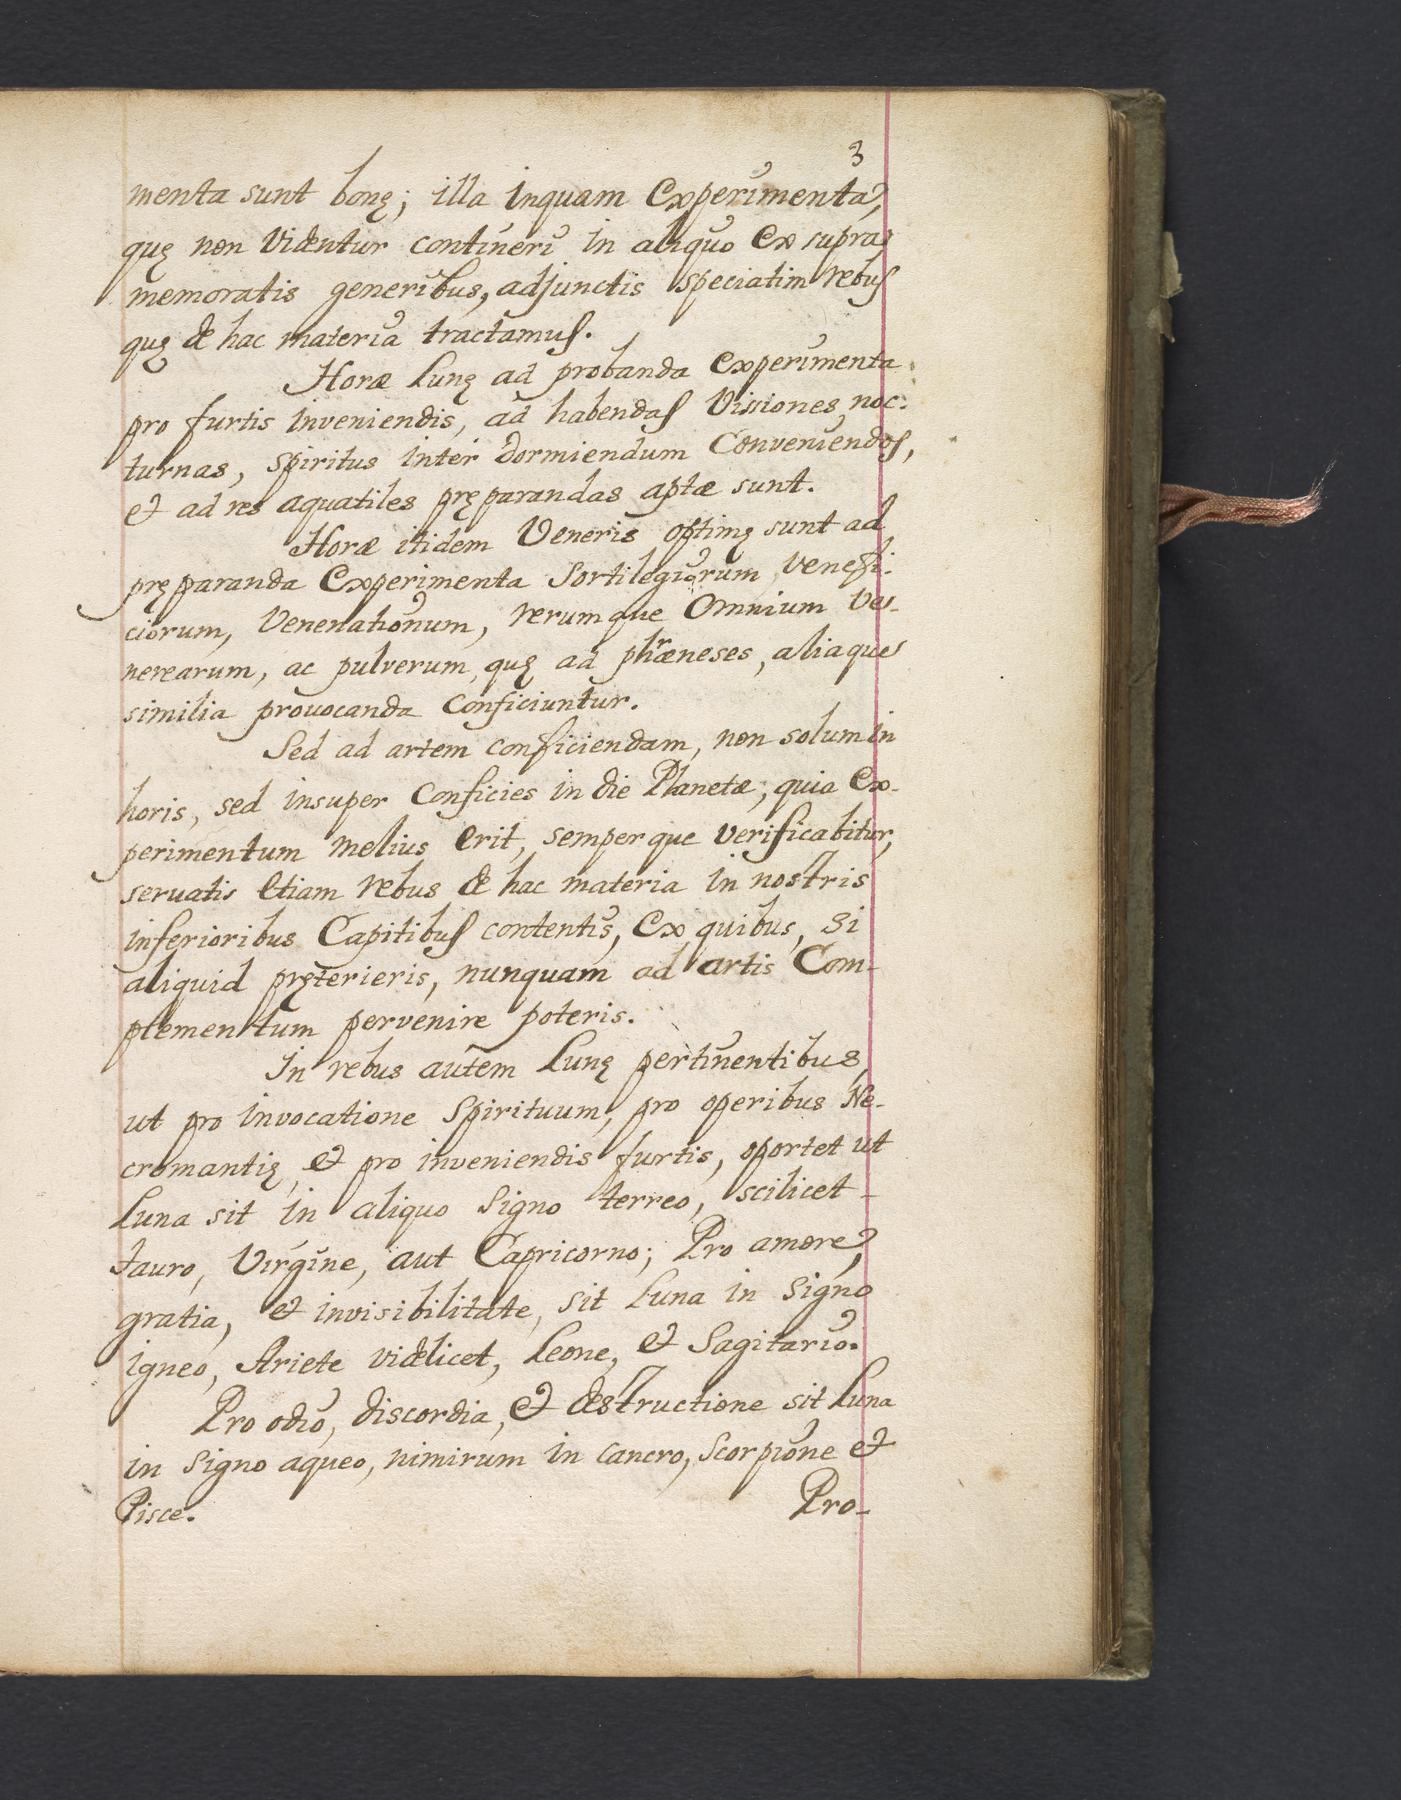 3
menta sunt bonę; illa inquam Experimenta,
quę non Videntur contineri in aliquo Ex supra
memoratis generibus, adjunctis speciatim rebus
quę de hac materia tractamus.
Horæ Lunę ad probanda Experimenta
pro furtis inveniendis, ad habendas Vissiones noc-
turnas, Spiritus inter dormiendum Conveniendos,
et ad res aquatiles pręparandas aptæ sunt.
Horæ itidem Veneris optimę sunt ad
pręparanda Experimenta Sortilegiorum, Venefi-
ciorum, Venenationum, rerumque Omnium Ve-
nerearum, ac pulverum, quę ad phræneses, aliaque
similia provocanda Conficiuntur.
Sed ad artem conficiendam, non solum in
horis, sed insuper Conficies in die Planetæ, quia Ex-
perimentum melius Erit, semperque verificabitur,
servatis Etiam rebus de hac materia in nostris
inferioribus Capitibus contentis, Ex quibus, si
aliquid pręterieris, nunquam ad artis Com-
plementum pervenire poteris.
In rebus autem Lunę pertinentibus,
ut pro invocatione Spirituum, pro operibus Ne-
cromantię, et pro inveniendis furtis, oportet ut
Luna sit in aliquo Signo terreo, scilicet
tauro, Virgine, aut Capricorno; Pro amore,
gratia, et invisibilitate, sit Luna in Signo
igneo, Ariete videlicet, Leone, et Sagitario.
Pro odio, discordia, et destructione sit Luna
in Signo aqueo, nimirum in cancro, Scorpione et
Pisce.
Pro-